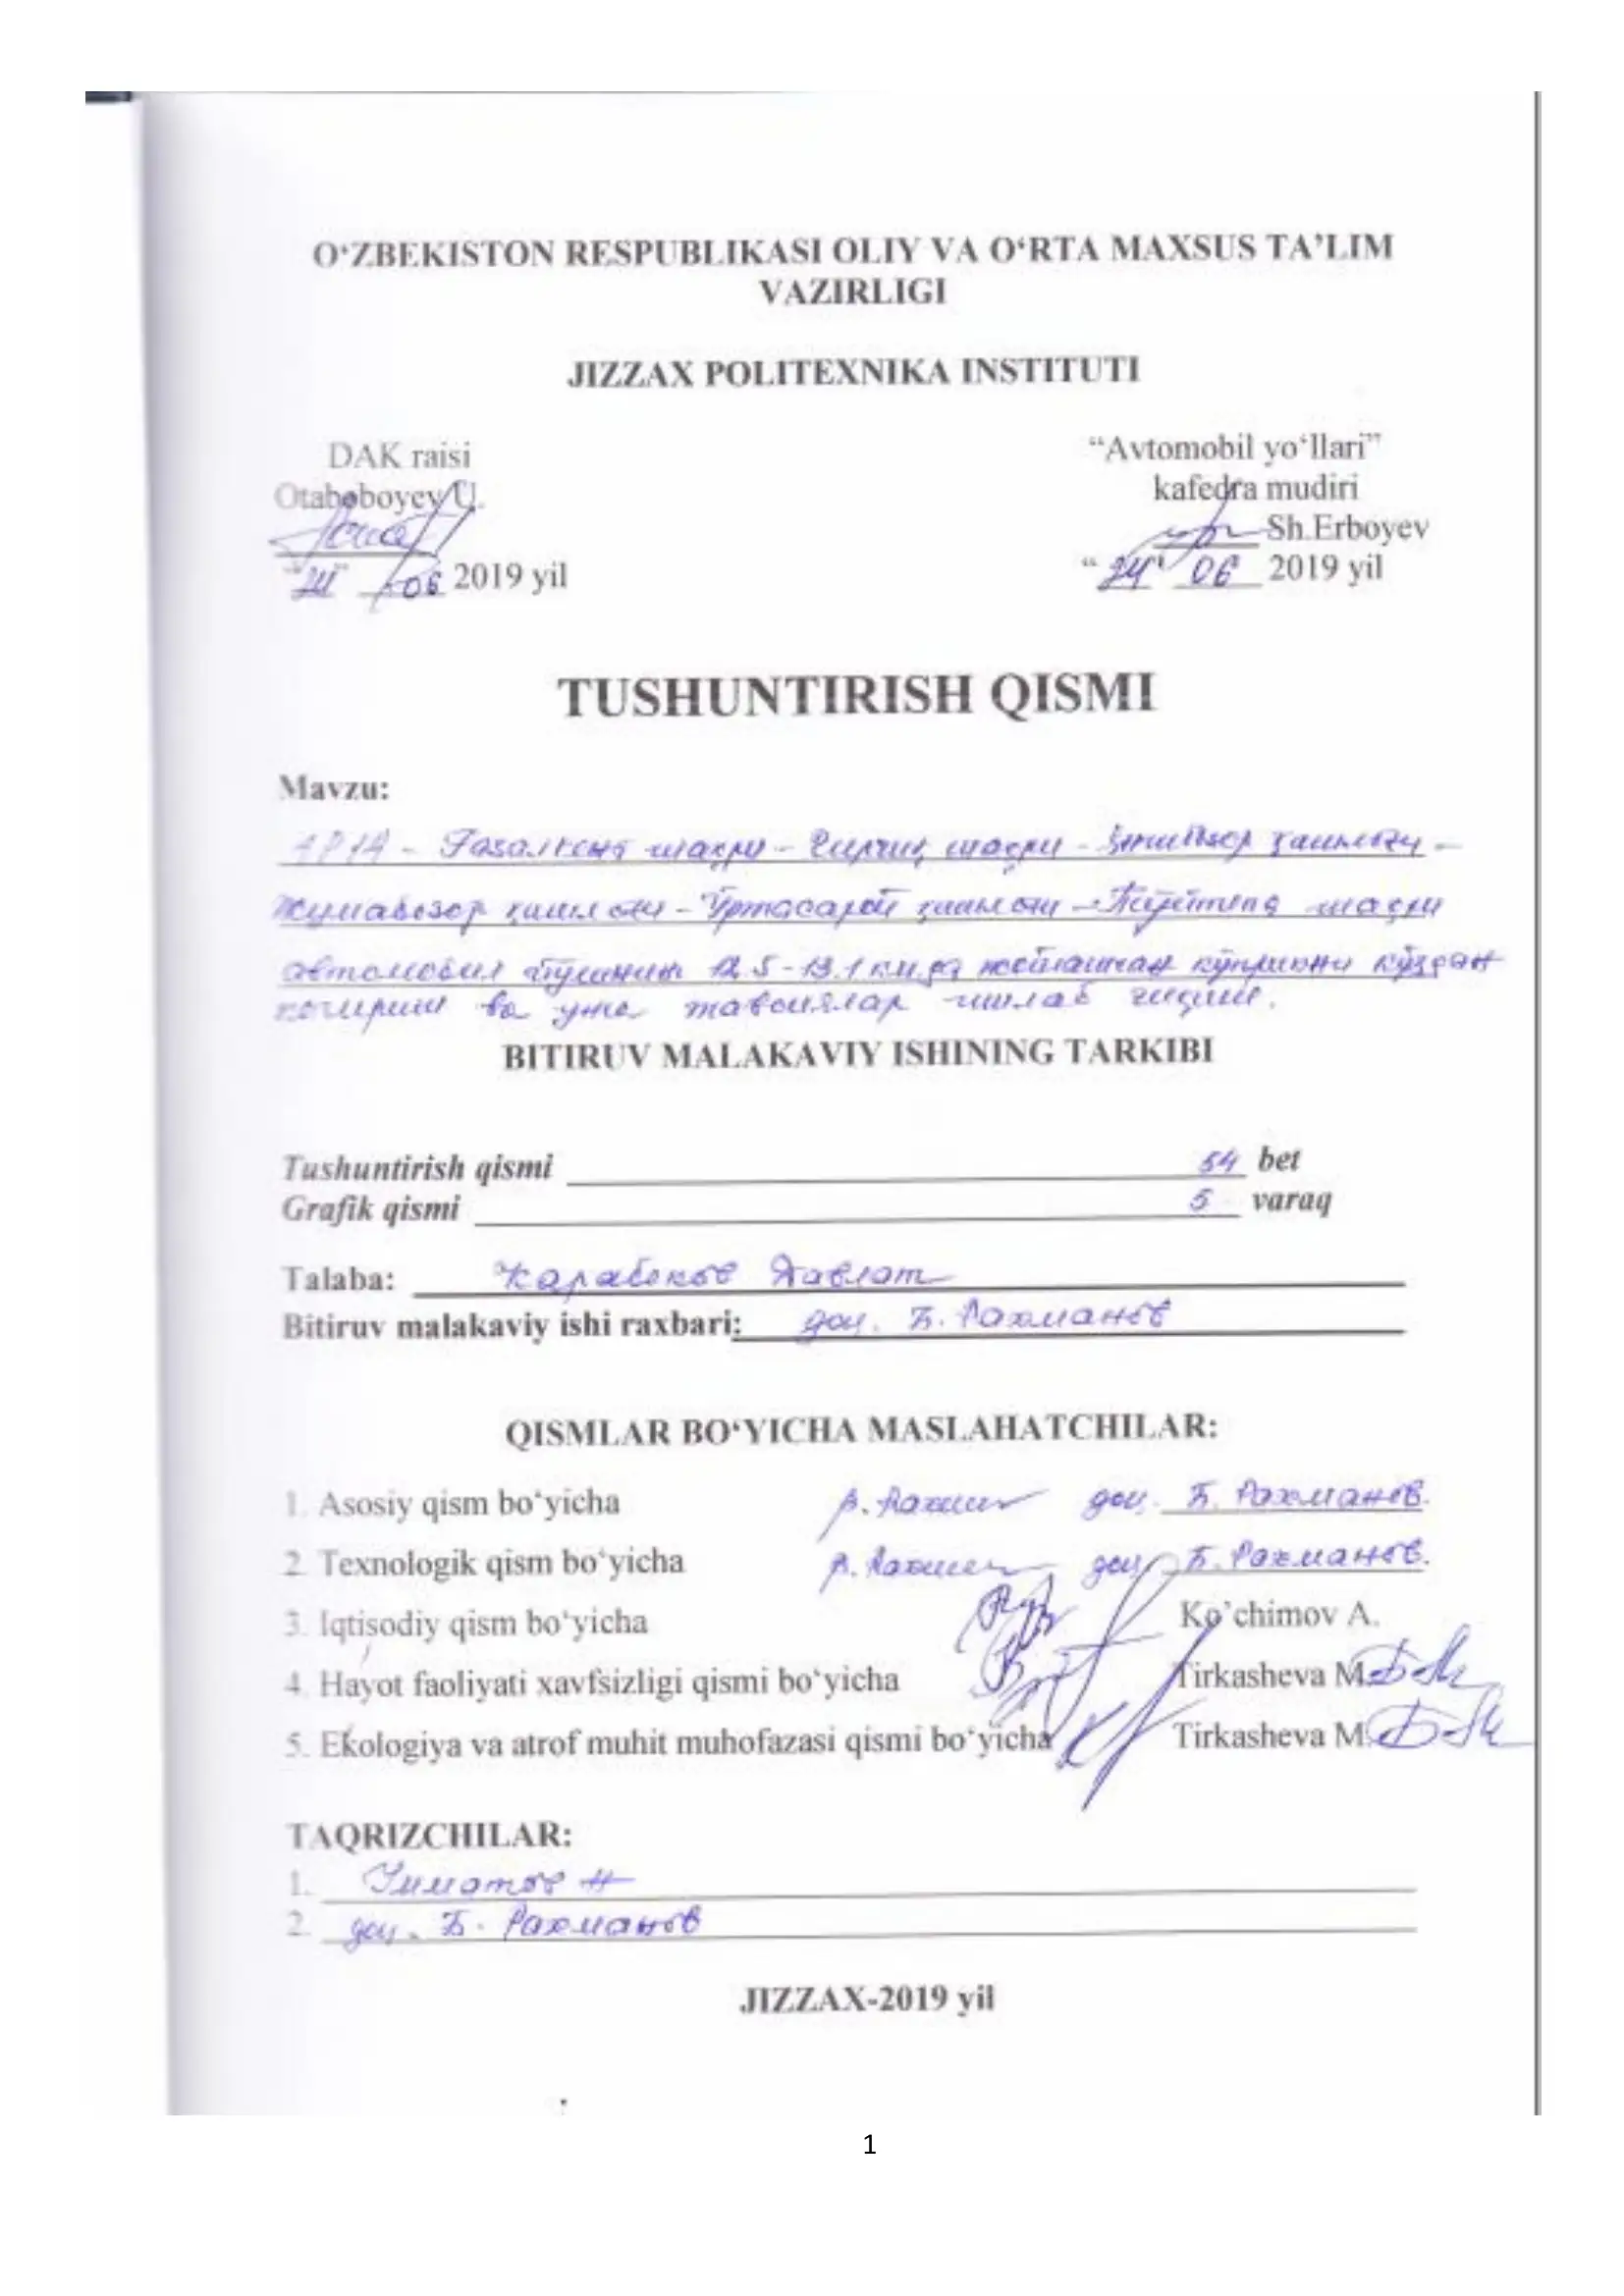 O‘ZBEKISTON RESPUBLIKASI OLIY VA O‘RTA MAXSUS TA’LIM
VAZIRLIGI
JIZZAX POLITEXNIKA INSTITUTI
DAK raisi
Otaboboyev U.
06 2019 yil
“Avtomobil yo‘llari”
kafedra mudiri
Sh.Erboyev
“24” 06 2019 yil
TUSHUNTIRISH QISMI
Mavzu:
- Ғазалкент шаҳри - Чирчиқ шаҳри - қишлоғи -
Жумабозор қишлоғи - Ўртасарой қишлоғи - Тўйтепа шаҳри
автомобил йўлининг 12.5-13.1 км.да жойлашган кўприкни кўздан
кечириш ва унга тавсиялар ишлаб чиқиш.
BITIRUV MALAKAVIY ISHINING TARKIBI
Tushuntirish qismi 54 bet
Grafik qismi 5 varaq
Talaba: Карабеков Давлат
Bitiruv malakaviy ishi raxbari: доц. Б. Рахманов
QISMLAR BO‘YICHA MASLAHATCHILAR:
1. Asosiy qism bo‘yicha доц. Б. Рахманов.
2. Texnologik qism bo‘yicha доц. Б. Рахманов.
3. Iqtisodiy qism bo‘yicha Ko’chimov A.
4. Hayot faoliyati xavfsizligi qismi bo‘yicha Tirkasheva M.
5. Ekologiya va atrof muhit muhofazasi qismi bo‘yicha Tirkasheva M.
TAQRIZCHILAR:
1.
2. доц. Б. Рахманов
JIZZAX-2019 yil
1